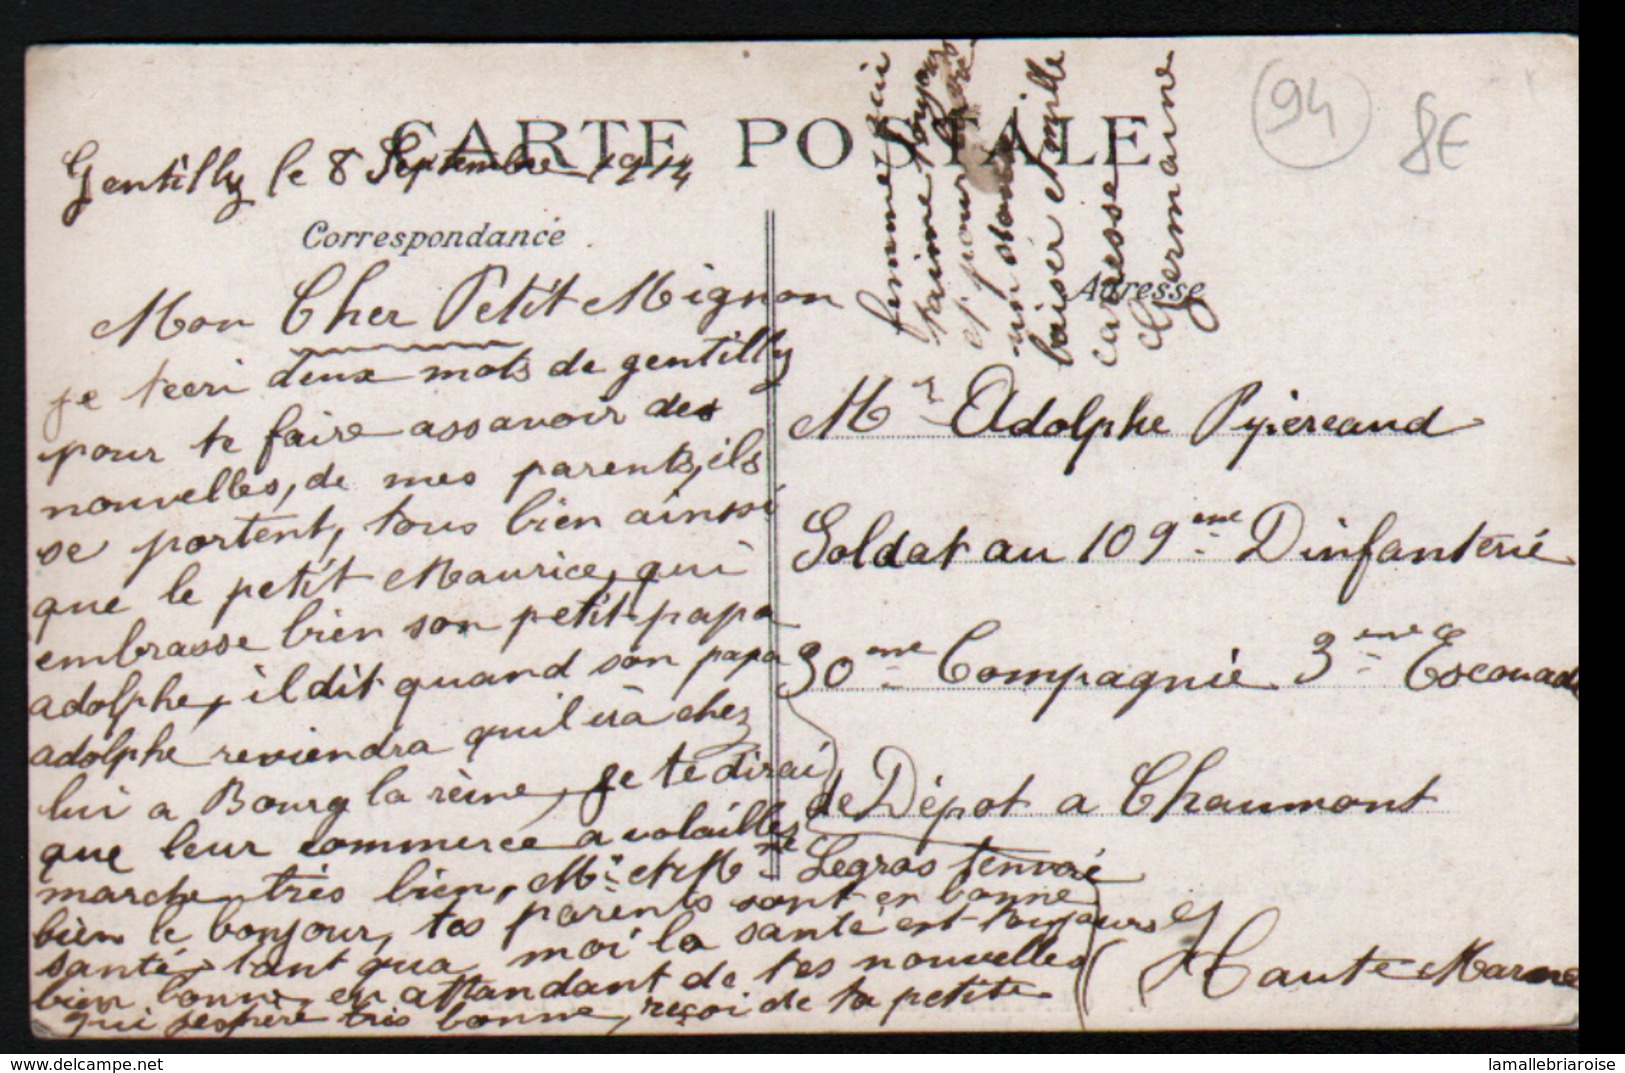 CARTE POSTALE
Gentilly le 8 Septembre 1914
Correspondance
Mon Cher Petit Mignon
je tecri deux mots de gentilly
pour te faire assavoir des
nouvelles, de mes parents, ils
se portent, tous bien ainssi
que le petit Maurice, qui
embrasse bien son petit papa
adolphe, il dit quand son papa
adolphe reviendra quil ira chez
lui a Bourg la reine, je te dirai
que leur commerce a volailles
marche très bien, Mr et Mme Legras tenvoie
bien le bonjour, tes parents sont en bonne
santé, tant qua moi la santé est toujours
bien bonne, en attandant de tes nouvelles
qui jespère très bonne, reçoi de ta petite
femme qui
taime toujours
et pour la vie
un
baiser et mille
caresse
Germaine
Adresse
Mr Adolphe
Soldat au 109eme Dinfanterie
30eme Compagnie 3eme Escouade
de Dépot a Chaumont
(Haute Marne
94
8€
www.delcampe.net
lamallebriaroise